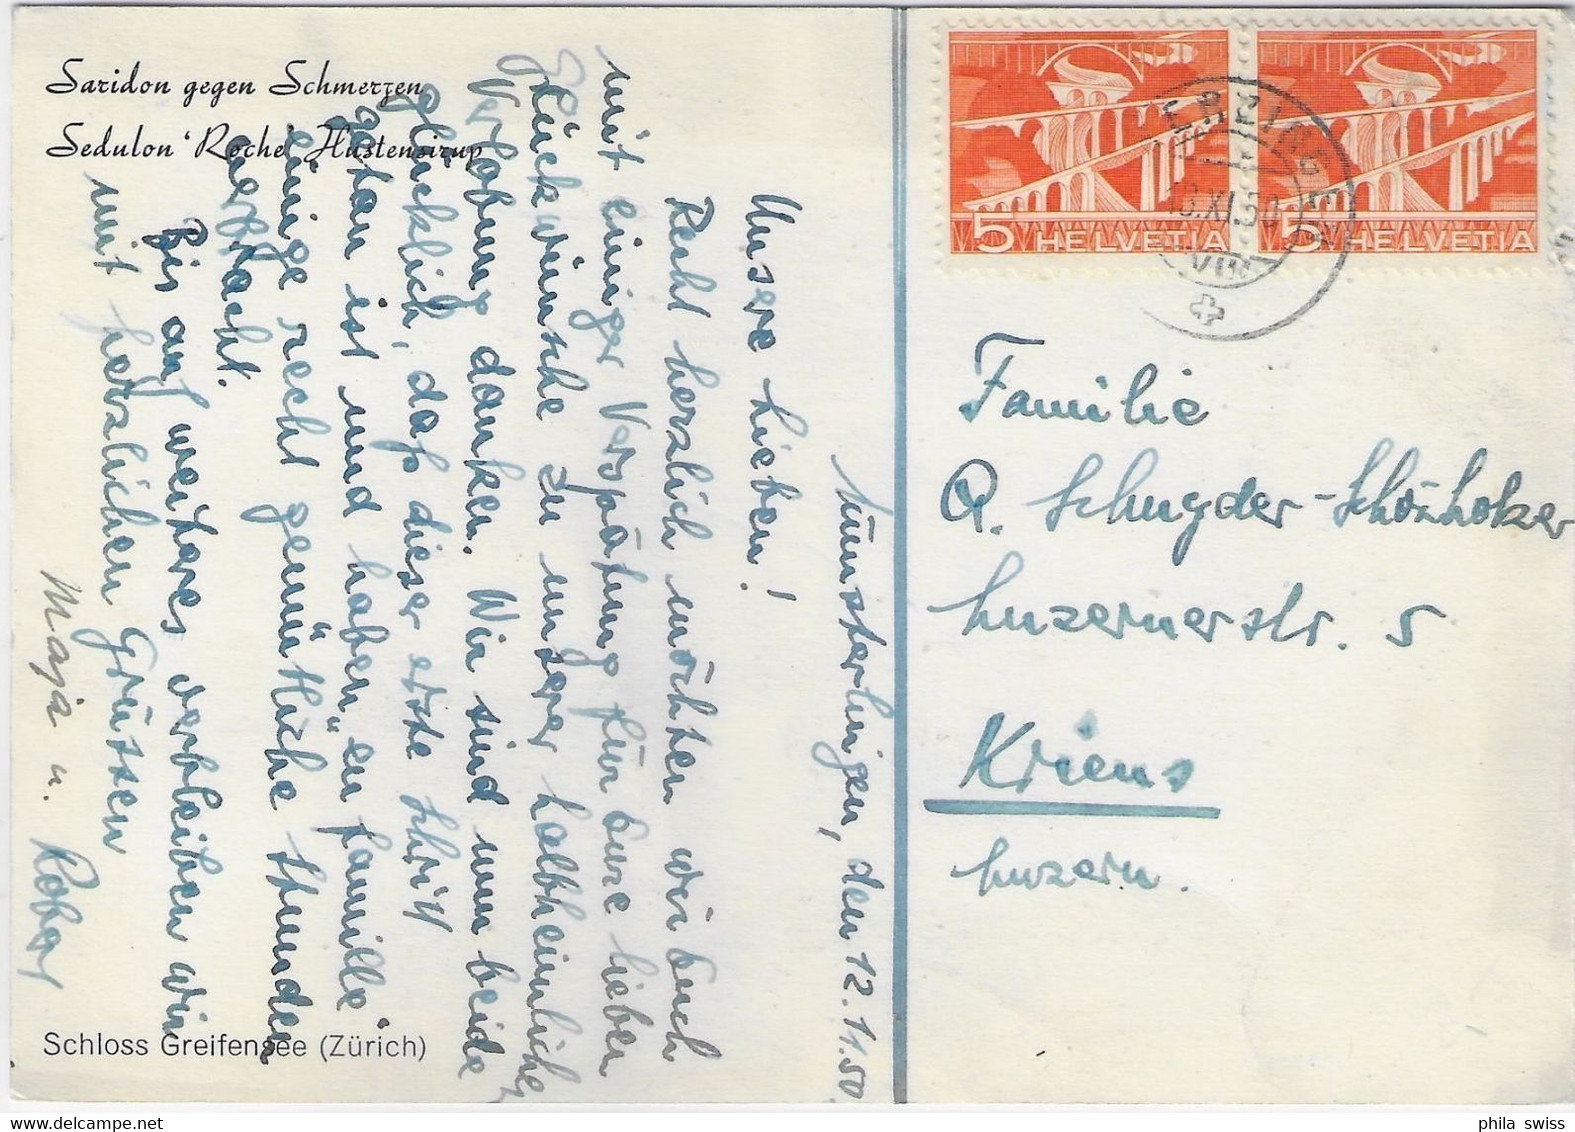 Saridon gegen Schmerzen
Sedulon 'Roche' Hustensirup
Münsterlingen, den 12.11.50.
Unsere Lieben!
Recht herzlich möchten wir Euch
mit einiger Verspätung für Eure lieben
Glückwünsche zu unserer halbheimlichen
Verlobung danken. Wir sind nun beide
glücklich, daß dieser erste Schritt
getan ist und haben „en famille"
einige recht gemütliche Stunden
verbracht.
Bis auf weiteres verbleiben wir
mit herzlichen Grüssen
Maja u. Robert
Schloss Greifensee (Zürich)
5 HELVETIA
5 HELVETIA
XI.50
VIII
Familie
Luzernerstr. 5
Kriens
Luzern.
phila swiss